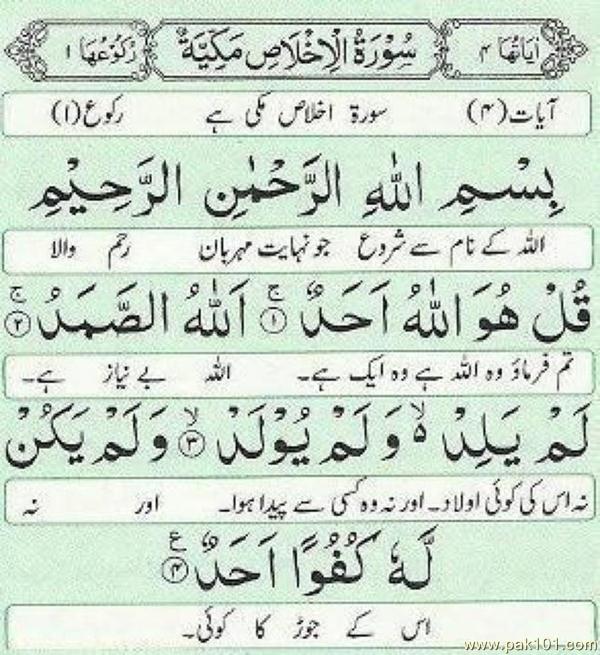 اٰيَاتُهَا ٤ سُوْرَةُ الْاِخْلَاصِ مَكِّيَّةٌ رُكُوْعُهَا ١
آیات(۴) سورۃ اخلاص مکی ہے رکوع(۱)
بِسْمِ اللّٰهِ الرَّحْمٰنِ الرَّحِيْمِ
اللہ کے نام سے شروع جو نہایت مہربان رحم والا
قُلْ هُوَ اللّٰهُ اَحَدٌ ۚ‏ ﴿۱﴾ اَللّٰهُ الصَّمَدُ ۚ‏ ﴿۲﴾
تم فرماؤ وہ اللہ ہے وہ ایک ہے۔ اللہ بے نیاز ہے۔
لَمْ يَلِدْ ۙ۬ وَلَمْ يُوْلَدْ ۙ‏ ﴿۳﴾ وَلَمْ يَكُنْ
نہ اس کی کوئی اولاد۔ اور نہ وہ کسی سے پیدا ہوا۔ اور نہ
لَّهٗ كُفُوًا اَحَدٌ ﴿۴﴾ ع
اس کے جوڑ کا کوئی۔
www.pak101.com